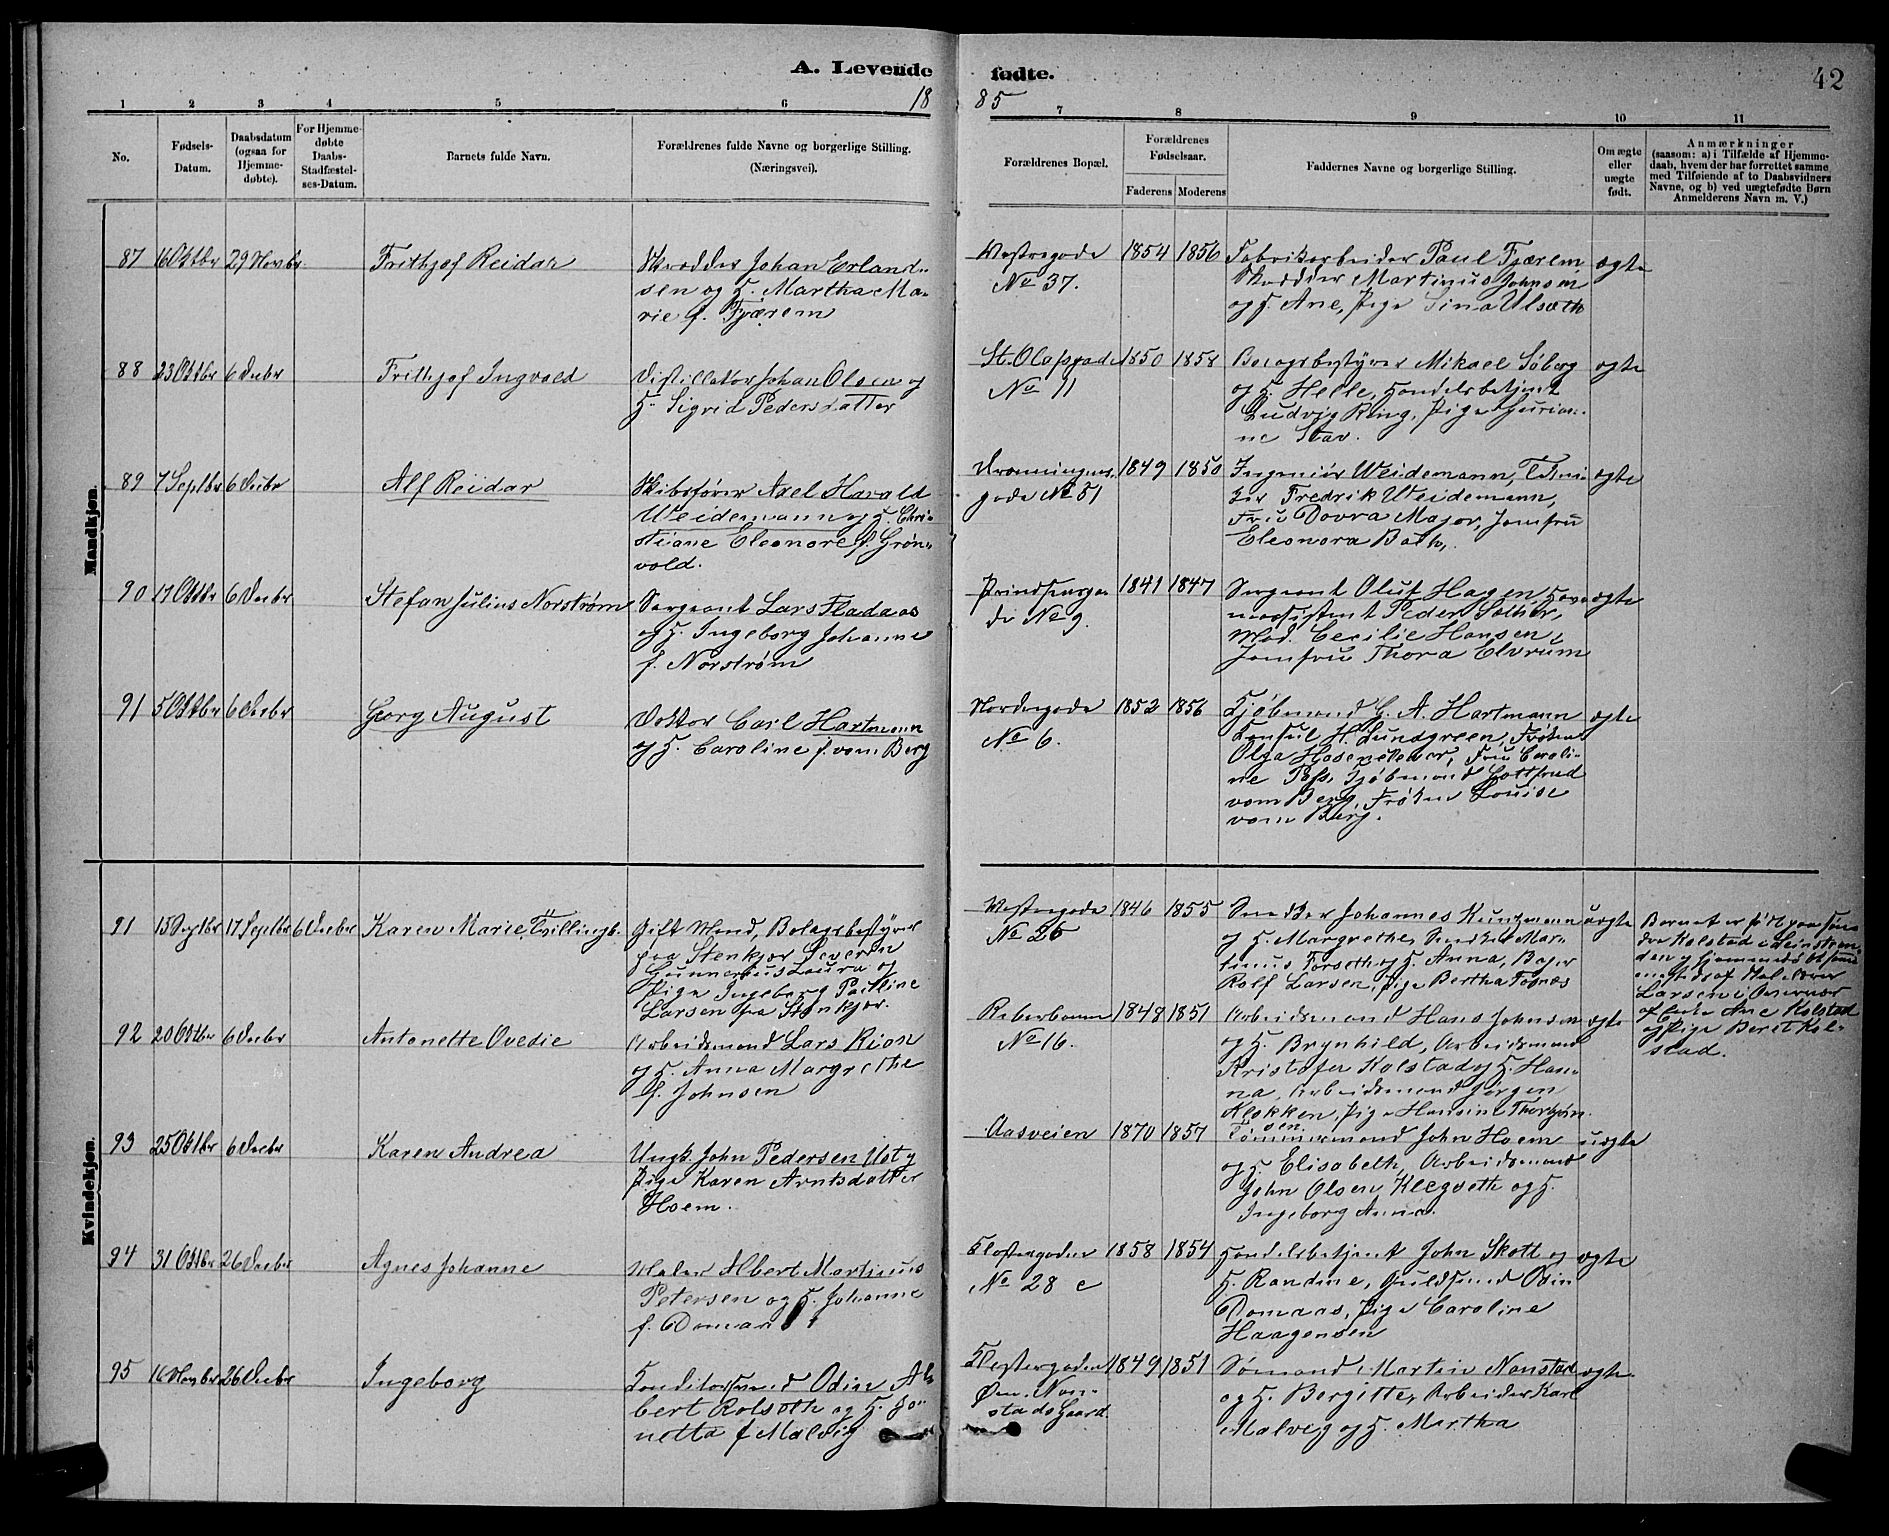 A. Levende fødte.
42
1885
1 2 3 4 5 6 7 8 9 10 11
No.
Fødsels-Datum.
Daabsdatum (ogsaa for Hjemme-døbte).
For Hjemme-døbte Daabs-Stadfæstel-ses-Datum.
Barnets fulde Navn.
Forældrenes fulde Navne og borgerlige Stilling. (Næringsvei).
Forældrenes Bopæl.
Forældrenes Fødselsaar.
Faderens Moderens
Faddernes Navne og borgerlige Stilling.
Om ægte eller uægte født.
Anmærkninger
(saasom: a) i Tilfælde af Hjemme-
daab, hvem der har forrettet samme
med Tilføiende af to Daabsvidners
Navne, og b) ved uægtefødte Børn
Anmelderens Navn m. V.)
Mandkjøn.
87 16 Oktbr 29 Novbr. Frithjof Reidar
Skrædder Johan Erland-
sen og H. Martha Ma-
rie f. Fjærem
Vestregade
No 37.
1854 1856
Fabrikarbeider Paul Fjærem
Skrædder Martinus Johnsen
og H. Ane, Pige Sina Ulsæth
ægte
88 23 Oktbr 6 Decbr Frithjof Ingvald
Distillatør Johan Olsen og
H. Sigrid Pedersdatter
St. Olafsgade
No 11
1850 1858
Bolagsbestyrer Mikael Söberg
og H. Helle, Handelsbetjent
Ludvig Ring, Pige Gurian-
ne Stav.
ægte
89 7 Septbr 6 Decbr Alf Reidar
Skibsfører Axel Harald
Weidemann og H. Chri-
stiane Eleonore f. Grøn-
vold.
Dronningens-
gade No 51
1849 1850
Ingeniør Weidemann, Tekni-
ker Fredrik Weidemann,
Fru Dovra Major, Jomfru
Eleonora Bath.
ægte
90 17 Oktbr 6 Decbr Stefan Julius Norstrøm
Sergeant Lars Fladaas
og H. Ingeborg Johanne
f. Norstrøm
Prindsensga-
de No 9.
1841 1847
Sergeant Oluf Hagen, Havne-
assistent Peder Sather,
Mad. Cecilie Hansen,
Jomfru Thora Elvrum
ægte
91 5 Oktbr 6 Decbr Georg August
Doktor Carl Hartmann
og H. Caroline f. vom Berg
Nordregade
No 6.
1852 1856
Kjöbmand G. A. Hartmann
Konsul H. Lundgreen, Frøken
Olga Hasenclever, Fru Caroli-
ne Kjöbmand Gottfried
vom Berg, Frøken Louise
vom Berg.
ægte
Kvindekjøn.
91 15 Septbr 17 Septbr 6 Decbr Karen Marie, Tvillingb.
Gift Mand, Bolagsbestyrer
paa Stenkjær Severin
Gunnerius Laura og
Pige Ingeborg Pauline
Larsen fra Stenkjær.
Vestregade
No 25
1846 1855
Snedker Johannes Kuntzmann
og H. Margrethe, Snedker Mar-
tinus Forseth og H. Anna, Bager
Rolf Larsen, Pige Bertha Fognæs
uægte
Barnet er født paa
Kolstad i Leinstran-
den og hjemmedøbt
af
Larsen i
af Enke Ane Kolstad
og Pige Berit Kol-
stad.
92 20 Oktbr 6 Decbr Antonette Ovedie
Arbeidsmand Lars Rian
og H. Anna Margrethe
f. Johnsen
Reberbanen
No 16.
1848 1851
Arbeidsmand Hans Johnsen
og H. Brynhild, Arbeidsmand
Kristofer Kolstad og H. Han-
na, Arbeidsmand Jørgen
Klokken, Pige Hansine Thorbjørn-
sen.
ægte
93 25 Oktbr 6 Decbr Karen Andrea
Ungk. John Pedersen Ust og
Pige Karen Arntsdatter
Hoem.
Aasveien
1870 1857
Tömmermand John Hoem
og H. Elisabeth, Arbeidsmand
John Olsen Klegseth og H.
Ingeborg Anna.
uægte
94 31 Oktbr 26 Decbr Agnes Johanne
Maler Albert Martinus
Petersen og H. Johanne
f. Domaas
Klostergaden
No 28 c
1858 1854
Handelsbetjent John Skott og
H. Randine, Guldsmed Odin
Domaas, Pige Caroline
Haagensen
ægte
95 16 Novbr 26 Decbr Ingeborg
Konditorsvend Odin Al-
bert Rolseth og H. Jo-
netta f Malvig
Klostergaden
Øen, Non-
stads Gaard.
1849 1851
Sømand Martin Nonstad
og H. Bergitte, Arbeider Karl
Malvig og H. Martha
ægte.